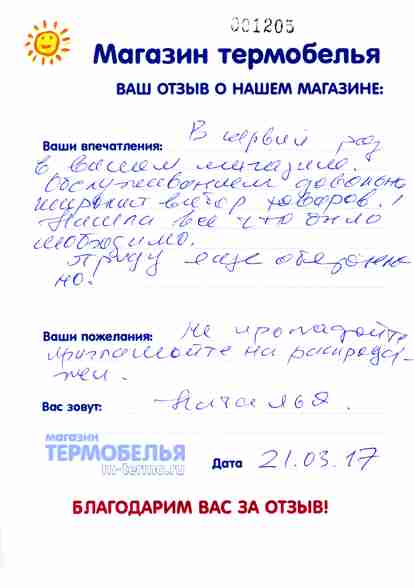 001205
Магазин термобелья
ВАШ ОТЗЫВ О НАШЕМ МАГАЗИНЕ:
Ваши впечатления: В первый раз
в вашем магазине.
Обслуживанием довольна
широкий выбор товаров.!
Нашла все что было
необходимо.
Приду еще обязатель
но.
Ваши пожелания: Не пропадайте
приглашайте на распрода-
жи.
Вас зовут: Наталья.
магазин
ТЕРМОБЕЛЬЯ
m-termo.ru
Дата 21.03.17
БЛАГОДАРИМ ВАС ЗА ОТЗЫВ!